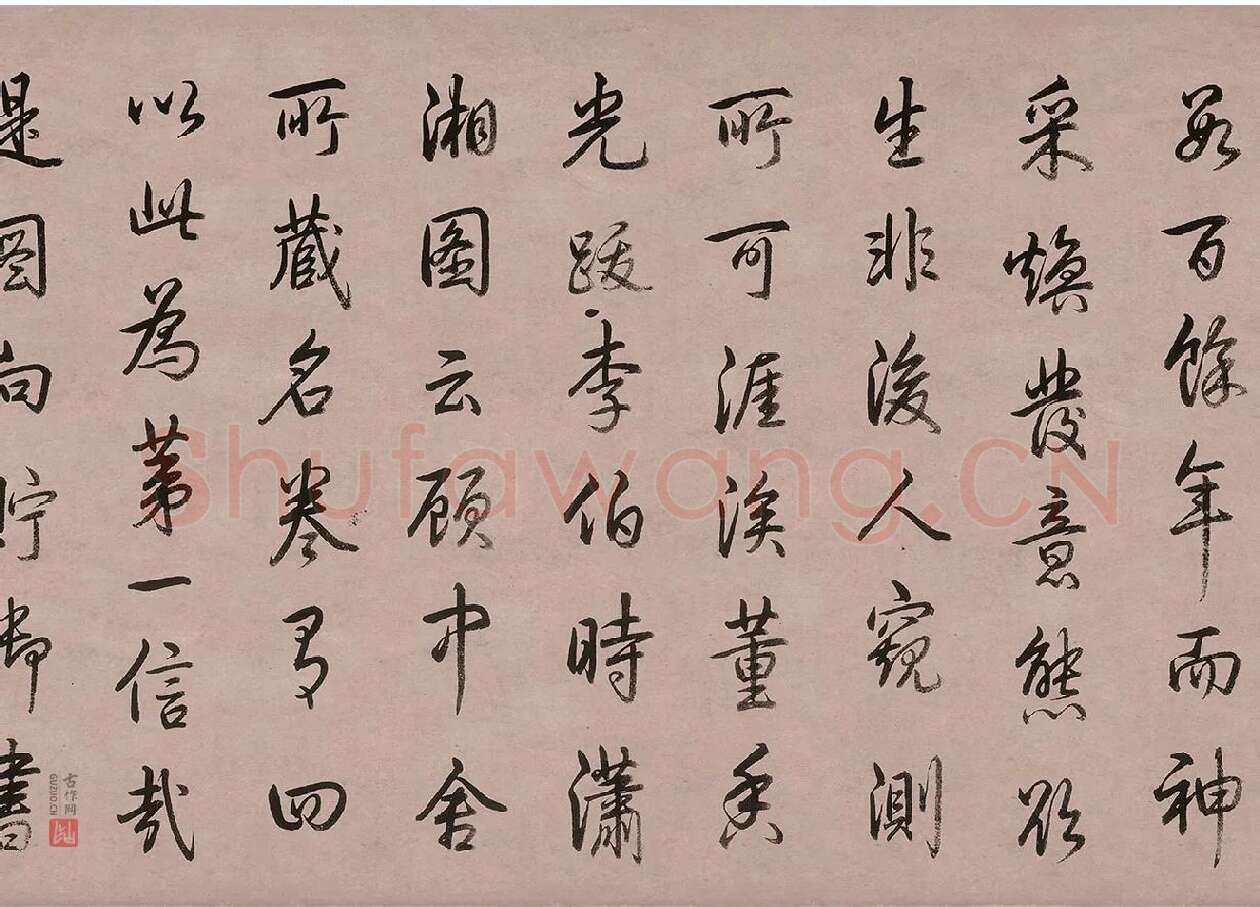 數百餘年而神
采煥發意態欲
生非後人窺測
所可涯涘董香
光跋李伯時瀟
湘圖云顧中舍
所藏名卷有四
以此為第一信哉
是圖向貯御書
Shufawang.CN
古作网
GUZUO.CN